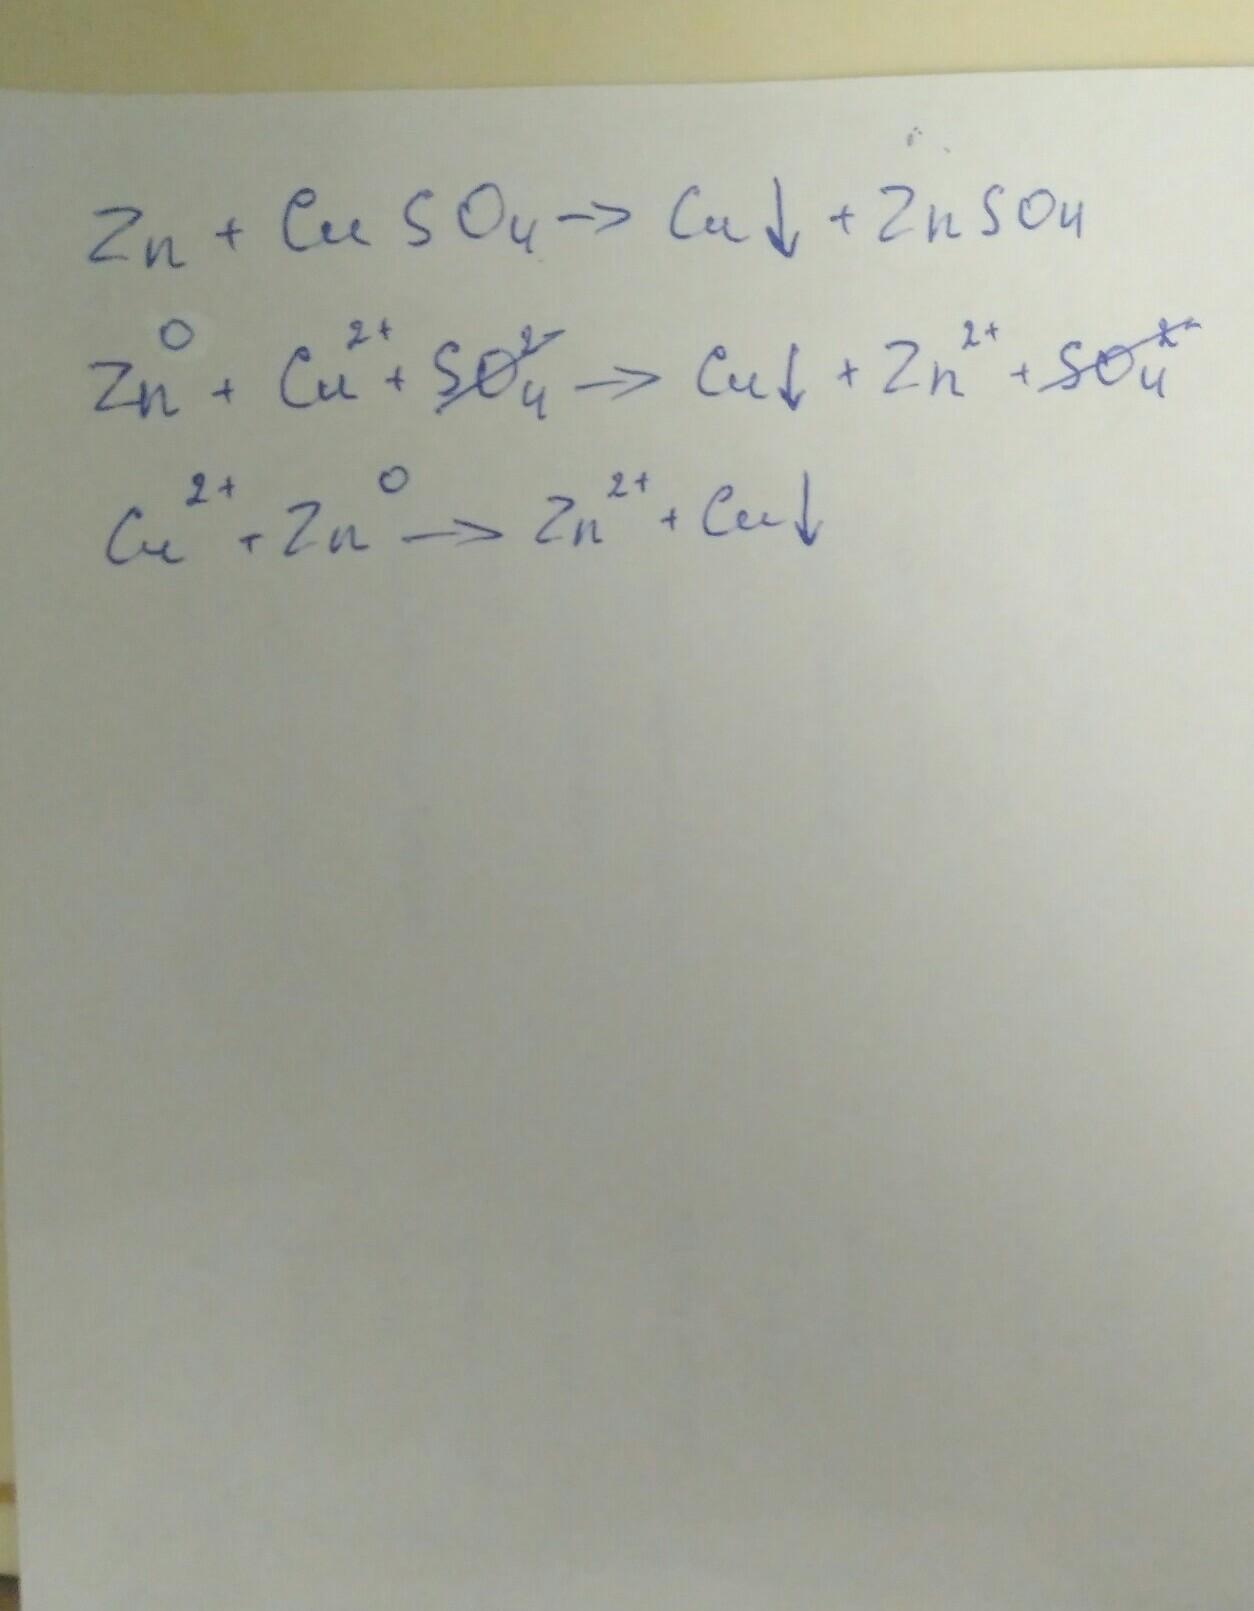 Zn + CuSO₄ → Cu↓ + ZnSO₄
Zn⁰ + Cu²⁺ + S̶O̶₄̶²̶⁻̶ → Cu↓ + Zn²⁺ + S̶O̶₄̶²̶⁻̶
Cu²⁺ + Zn⁰ → Zn²⁺ + Cu↓